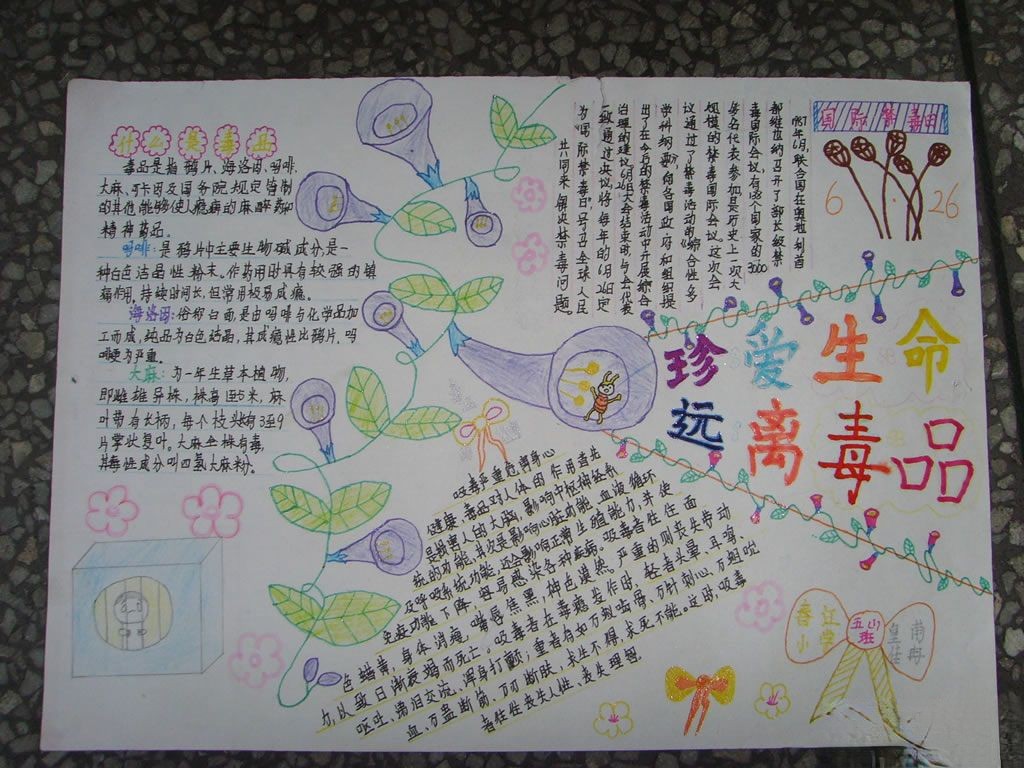 什么是毒品
毒品是指鸦片、海洛因、吗啡、
大麻、可卡因及国务院规定管制
的其他能够使人瘾癖的麻醉药和
精神药品。
吗啡：是鸦片中主要生物碱成分，是一
种白色洁晶性粉末。作药用时具有较强的镇
痛作用，持续时间长，但常用极易成瘾。
海洛因：俗称白面是由吗啡与化学品加
工而成，纯品为白色结晶，其成瘾性比鸦片，吗
啡更为严重。
大麻：为一年生草本植物，
即雌雄异株，株高1至5米，麻
叶带有长柄，每个枝头有3至9
片掌状复叶。大麻全株有毒，
其毒性成分叫四氢大麻粉。
国际禁毒日
6.26
1987年6月，联合国在奥地利首
都维也纳召开了部长级禁
毒国际会议，有138个国家的3000
多名代表参加是历史上一次大
规模的禁毒国际会议。这次会
议通过了禁毒活动的《综合性多
学科纲要》向各国政府和组织提
出了在今后的禁毒活动中开展综合
治理的建议。6月26日大会结束时，与会代表
一致通过决议将每年的6月26日定
为"国际禁毒日"号召全球人民
共同来解决禁毒问题。
珍爱生命
远离毒品
吸毒严重危害身心
健康，毒品对人体的作用首先
是损害人的大脑，影响中枢神经系
统的功能，其次是影响心脏功能，血液循环
及呼吸系统功能，还会影响正常生殖能力，并使
免疫功能下降，极易感染各种疾病。吸毒者往往面
色蜡黄，身体消瘦，嘴唇焦黑，神色漠然，严重的则丧失劳动
力，以致日渐衰竭而死亡。吸毒者在毒瘾发作时，轻者头晕、耳鸣、
呕吐、涕泪交流、浑身打颤；重者有如万蚁啮骨、万针刺心、万蛆吮
血、万蛊断筋、万刃断肤，求生不得，求死不能。这时，吸毒
者往往丧失人性，丧失理智。
香山
江学
五山班
皇